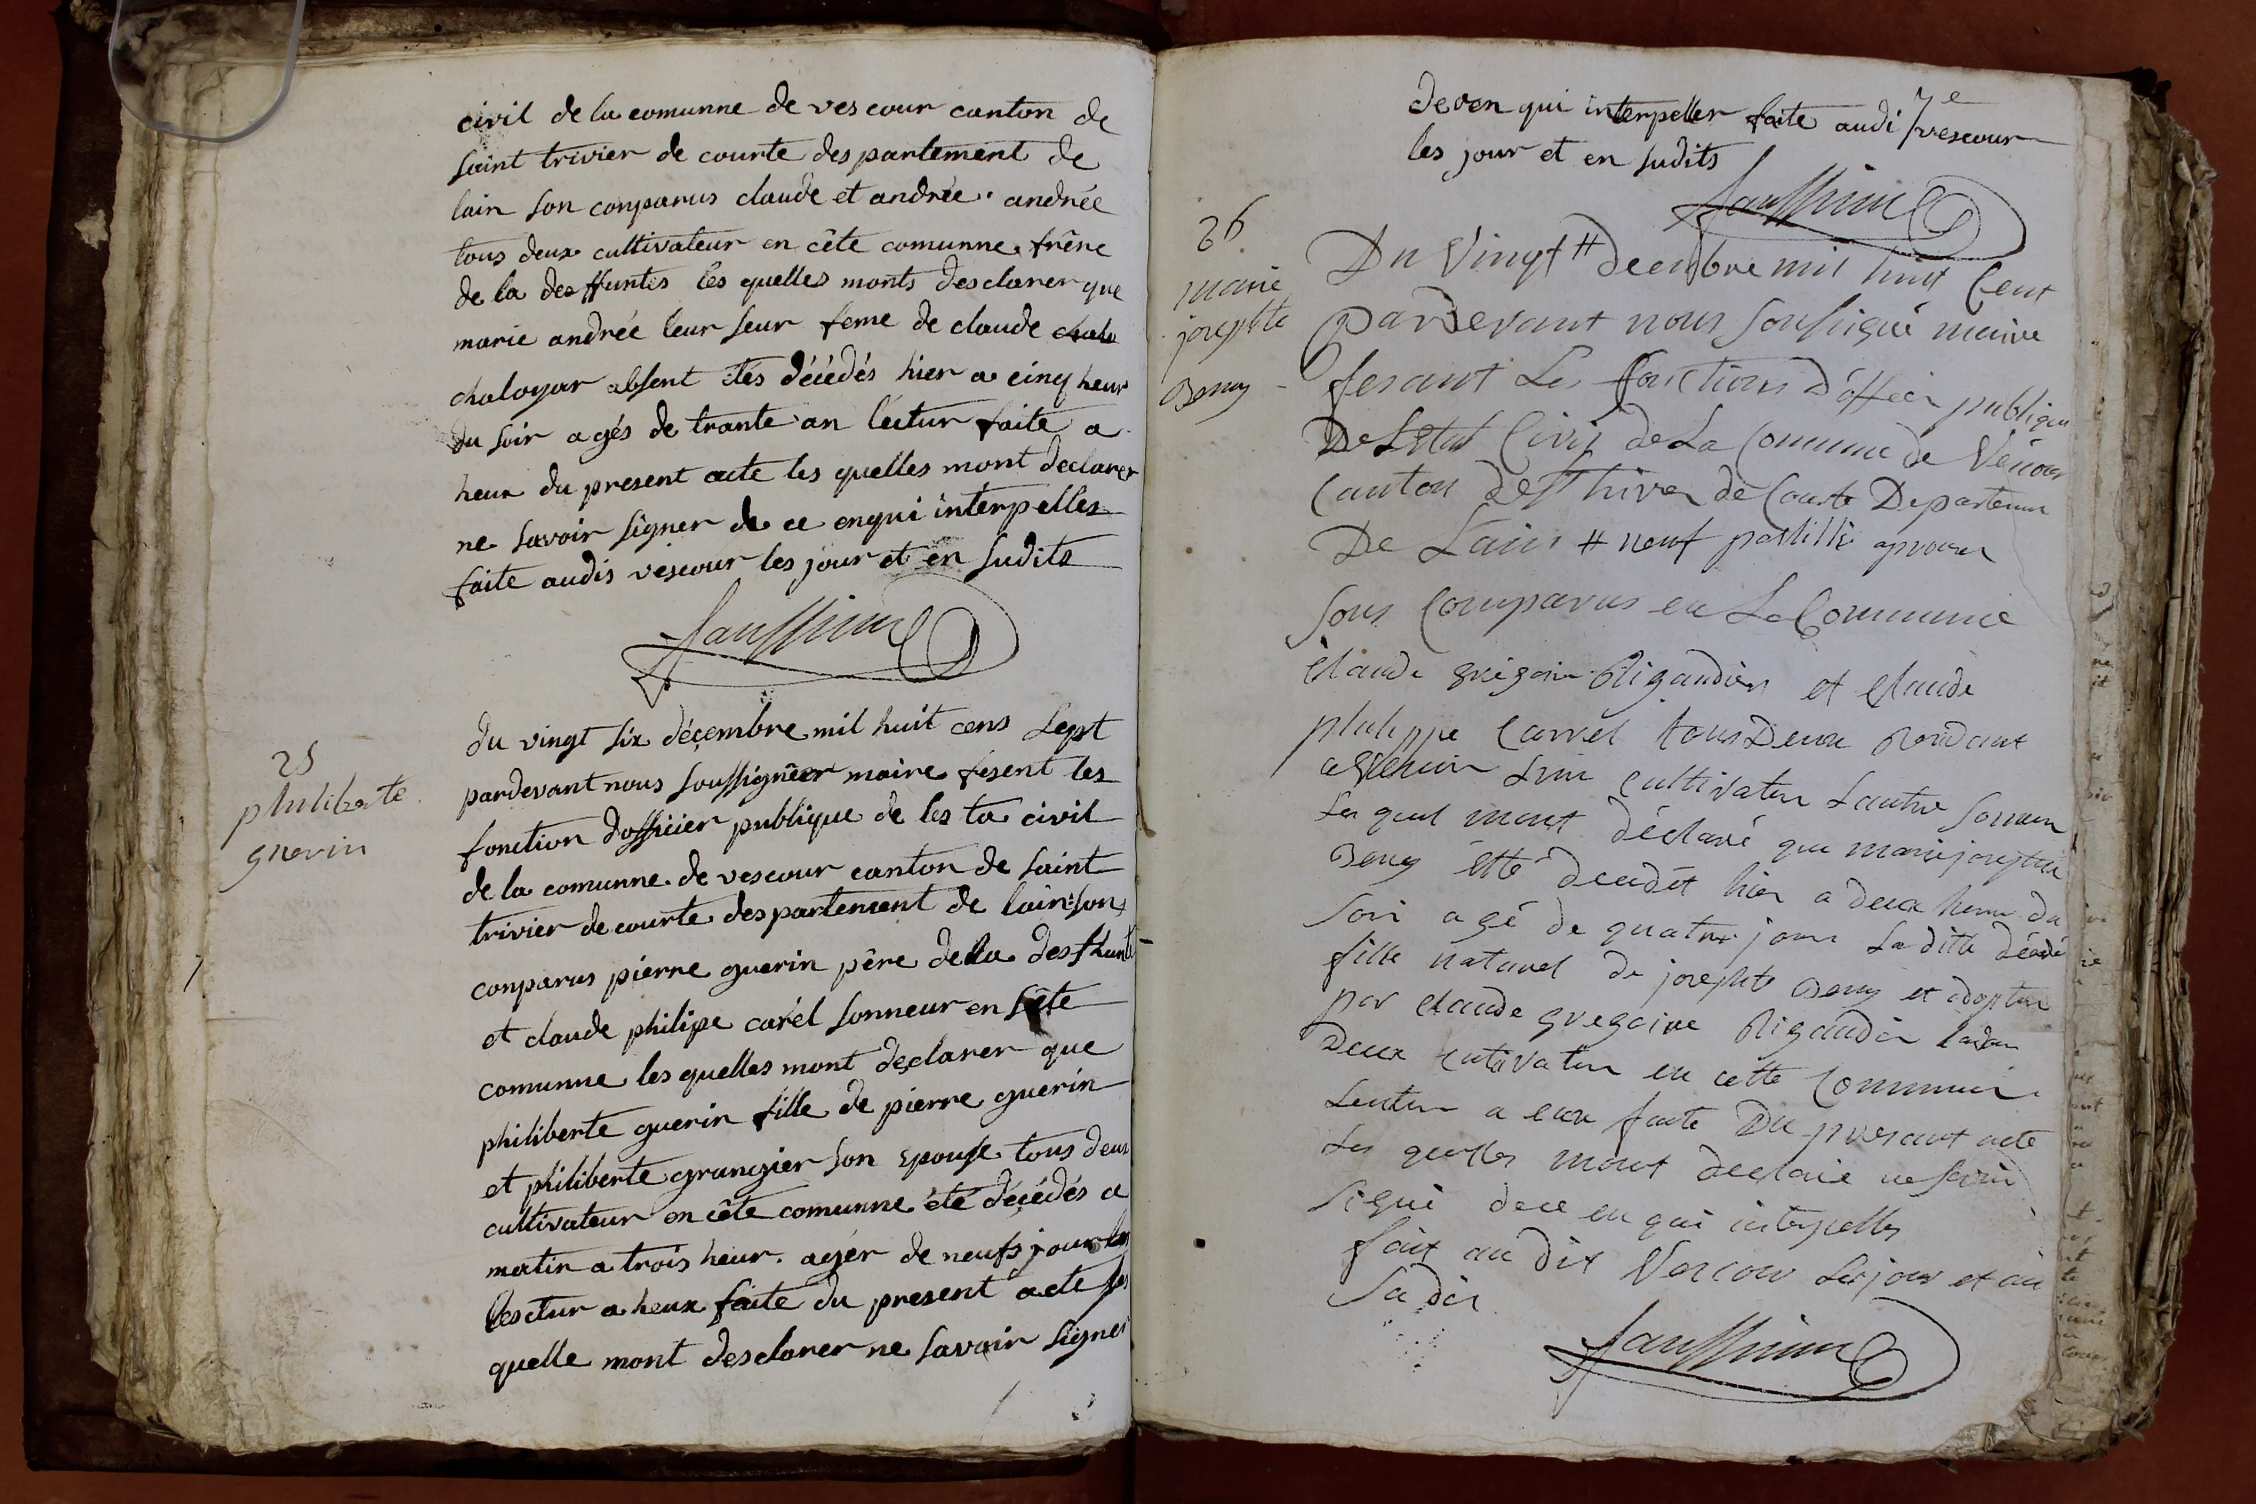 civil de la comunne de vescour canton de
saint trivier de courte despartement de
lain son conparus claude et andrée andrée
tous deux cultivateur en cête comunne frêre
de la deffuntes les quelles monts desclarer que
marie andrée leur seur feme de claude
chaloyar absent étés décédés hier a cinq heur
du soir agés de trante an lectur faite a
heux du present acte les quelles mont declarer
ne savoir signer de ce enqui interpelles
faite audis vescour les jour et en sudits
25
philiberte
guerin
du vingt six décembre mil huit cens sept
pardevant nous soussignéer maire fesent les
fonction dofficier publique de les ta civil
de la comunne de vescour canton de saint
trivier de courte despartement de lain son
conparus pierre guerin pêre de la desfhunte
et claude philipe carél sonneur en sête
comunne les quelles mont desclarer que
philiberte guerin fille de pierre guerin
et philiberte grangier son epouse tous deux
cultivateur en cête comunne été décédés a
matin a trois heur agér de neufs jour
lesctur a heux faite du present acte les
quelle mont desclarer ne savoir signer
de cen qui interpeller faite audi vescour
les jour et en sudits
26
marie
josephte
Beny
Du Vingt # decembre mil huit Cent
Pardevant nous sousigné maire
fesant Les fonctions d'officier publique
De Létat Civil de La Commune de Vécour
Canton de St trivier de Courte Departemen
De Lain # neuf postillé aprouver
sons Comparus en La Commune
Claude grégoire Rigaudier et Claude
philippe Carrél tous Deux
Lun Cultivateur Lautre sonneur
Les quel mont déclaré que marie josephte
Beny étté decedét hier a deux heur du
soir agé de quatre jour La ditte décédé
fille naturel de josephte Beny et adopter
par Claude gregoire Rigaudier
Deux cultivateur en cette Commune
Lecture a eux faite Du presant acte
Les quelles mont declaré ne savoir
signé dece en qui interpelles
fait au dit Vescour Les jour et an